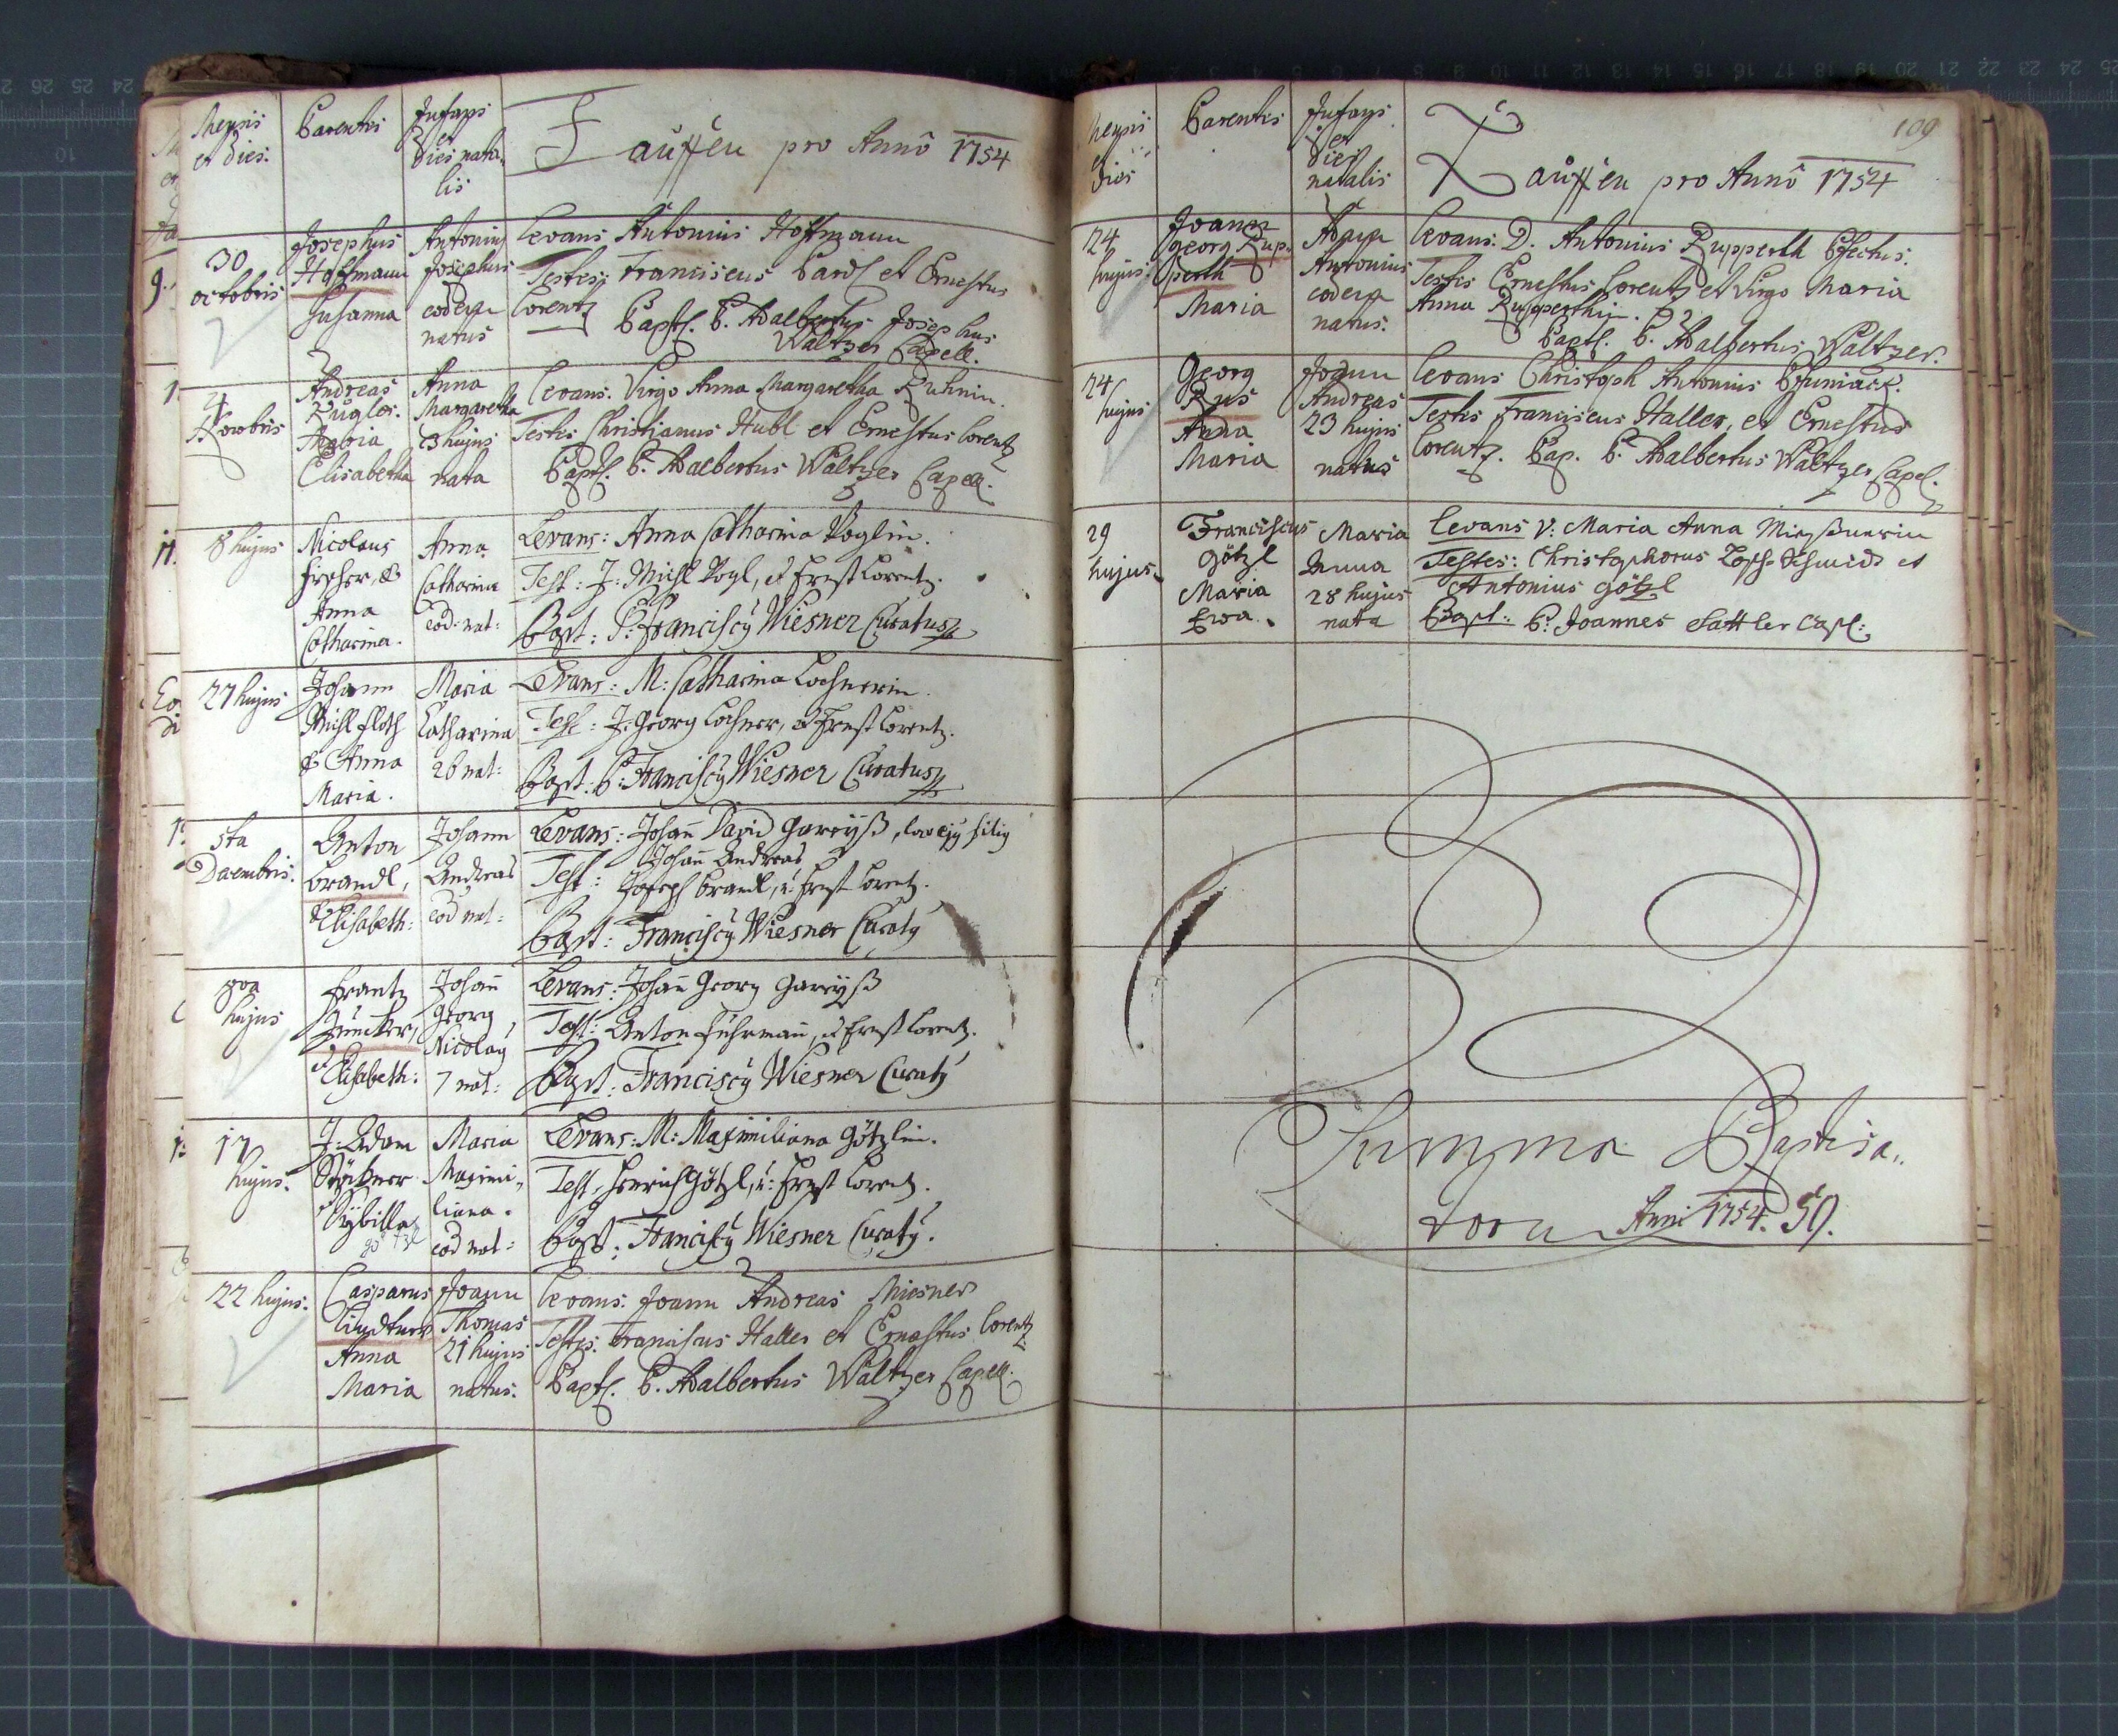 Mensis et dies.
Parentes
Infans et Dies natalis
Tauffen pro Annô 1754
30 octobris
Josephus Hoffmann Susanna
Antonius Josephus eodem natus
Levans Antonius Hoffmann
Testes: Franciscus et Ernestus
Lorentz Bapt. P. Adalbertus Josephus
Waltzer Capell.
4 Novbris
Andreas Maria Elisabetha
Anna Margaretha 3 hujus nata
Levans: Virgo Anna Margaretha
Testes Christianus Hubl et Ernestus Lorentz
Bapt. P. Adalbertus Waltzer Capell.
8 hujus
Nicolaus & Anna Catharina.
Anna Catharina Eod: nat:
Levans: Anna Catharina Voglin.
Test: J: Michl Vogl, et Ernst Lorentz.
Bapt: P: Franciscus Wiesner Curatus
27 hujus
Johann Michl Floth & Anna Maria.
Maria Catharina 26 nat:
Levans: M: Catharina Lochnerin.
Test: J: Georg Lochner, et Ernst Lorentz.
Bapt: P: Franciscus Wiesner Curatus
5ta Decembris.
Anton Brandl, & Elisabeth:
Johann Andreas eod nat:
Levans: Johann David Gareyß, loco ejus filius
Johann Andreas
Test: Joseph Brandl, u: Ernst Lorentz.
Bapt: Franciscus Wiesner Curatus
hujus
Frantz Juncker, et Elisabeth:
Johann Georg Nicolaus 7 nat:
Levans: Johann Georg Gareyß
Test: Anton Fuhrmann, et Ernst Lorentz.
Bapt: Franciscus Wiesner Curatus
17 hujus.
J: Adam Sybilla
Maria Maximiliana. eod nat:
Levans: M: Maximiliana Götzlin.
Test: Henrich Götzl, u: Ernst Lorentz.
Bapt: Franciscus Wiesner Curatus.
22 hujus.
Casparus Lindtner Anna Maria
Joann Thomas 21 hujus natus.
Levans: Joann Andreas Miesner
Testes: Franciscus Haller et Ernestus Lorentz
Bapt. P. Adalbertus Waltzer Capell.
109
Mensis et Dies
Parentes
Infans et Dies natalis
Tauffen pro Annô 1754
24 hujus:
Joann Georg Rupperth Maria
Adam Antonius eodem natus.
Levans: D. Antonius Rupperth
Testes Ernestus Lorentz et Virgo Maria
Anna Rupperthin.
Bapt. P. Adalbertus Waltzer.
24 hujus
Georg Anna Maria
Joann Andreas 23 hujus natus
Levans Christoph Antonius
Testes Franciscus Haller, et Ernestus
Lorentz. Bap. P. Adalbertus Waltzer Capel.
29 hujus
Franciscus Götzl Maria Eva.
Maria Anna 28 hujus nata
Levans V: Maria Anna
Testes: Christophorus et
Antonius Götzl
Bapt: P: Joannes Sattler Capl:
Summa Baptisa„
torum Anni 1754. 50.